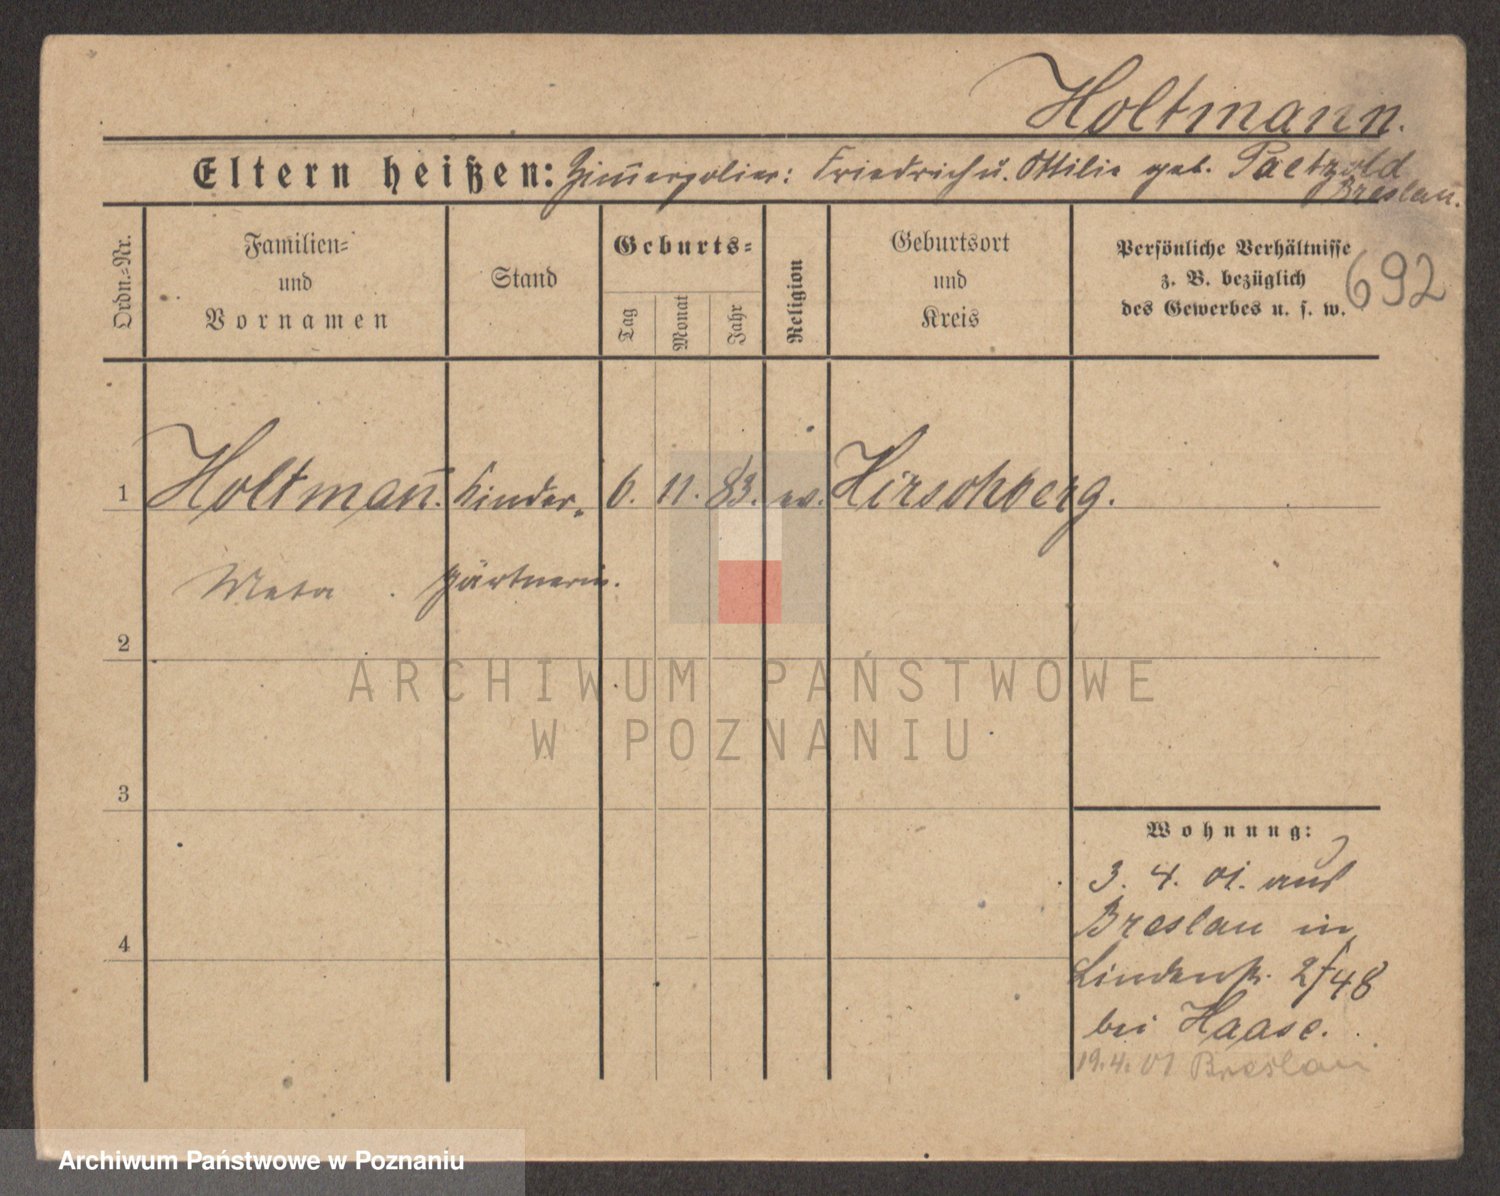 Holtmann.
Eltern heißen: Zimerpolier: Friedrich u. Ottilie geb. Paetzold
Breslau.
Ordn.-Nr.
Familien-
und
Vornamen
Stand
Geburts-
Tag
Monat
Jahr
Religion
Geburtsort
und
Kreis
Persönliche Verhältnisse
z. B. bezüglich
des Gewerbes u. s. w.
692
1 Holtman̅. Kinder- 6. 11. 83. ev. Hirschberg.
Meta. gärtnerin.
2
3
4
Wohnung:
3. 4. 01. aus
Breslau in
Lindenstr. 2/48
bei Haase.
19.4.01 Breslau
ARCHIWUM PAŃSTWOWE
W POZNANIU
Archiwum Państwowe w Poznaniu